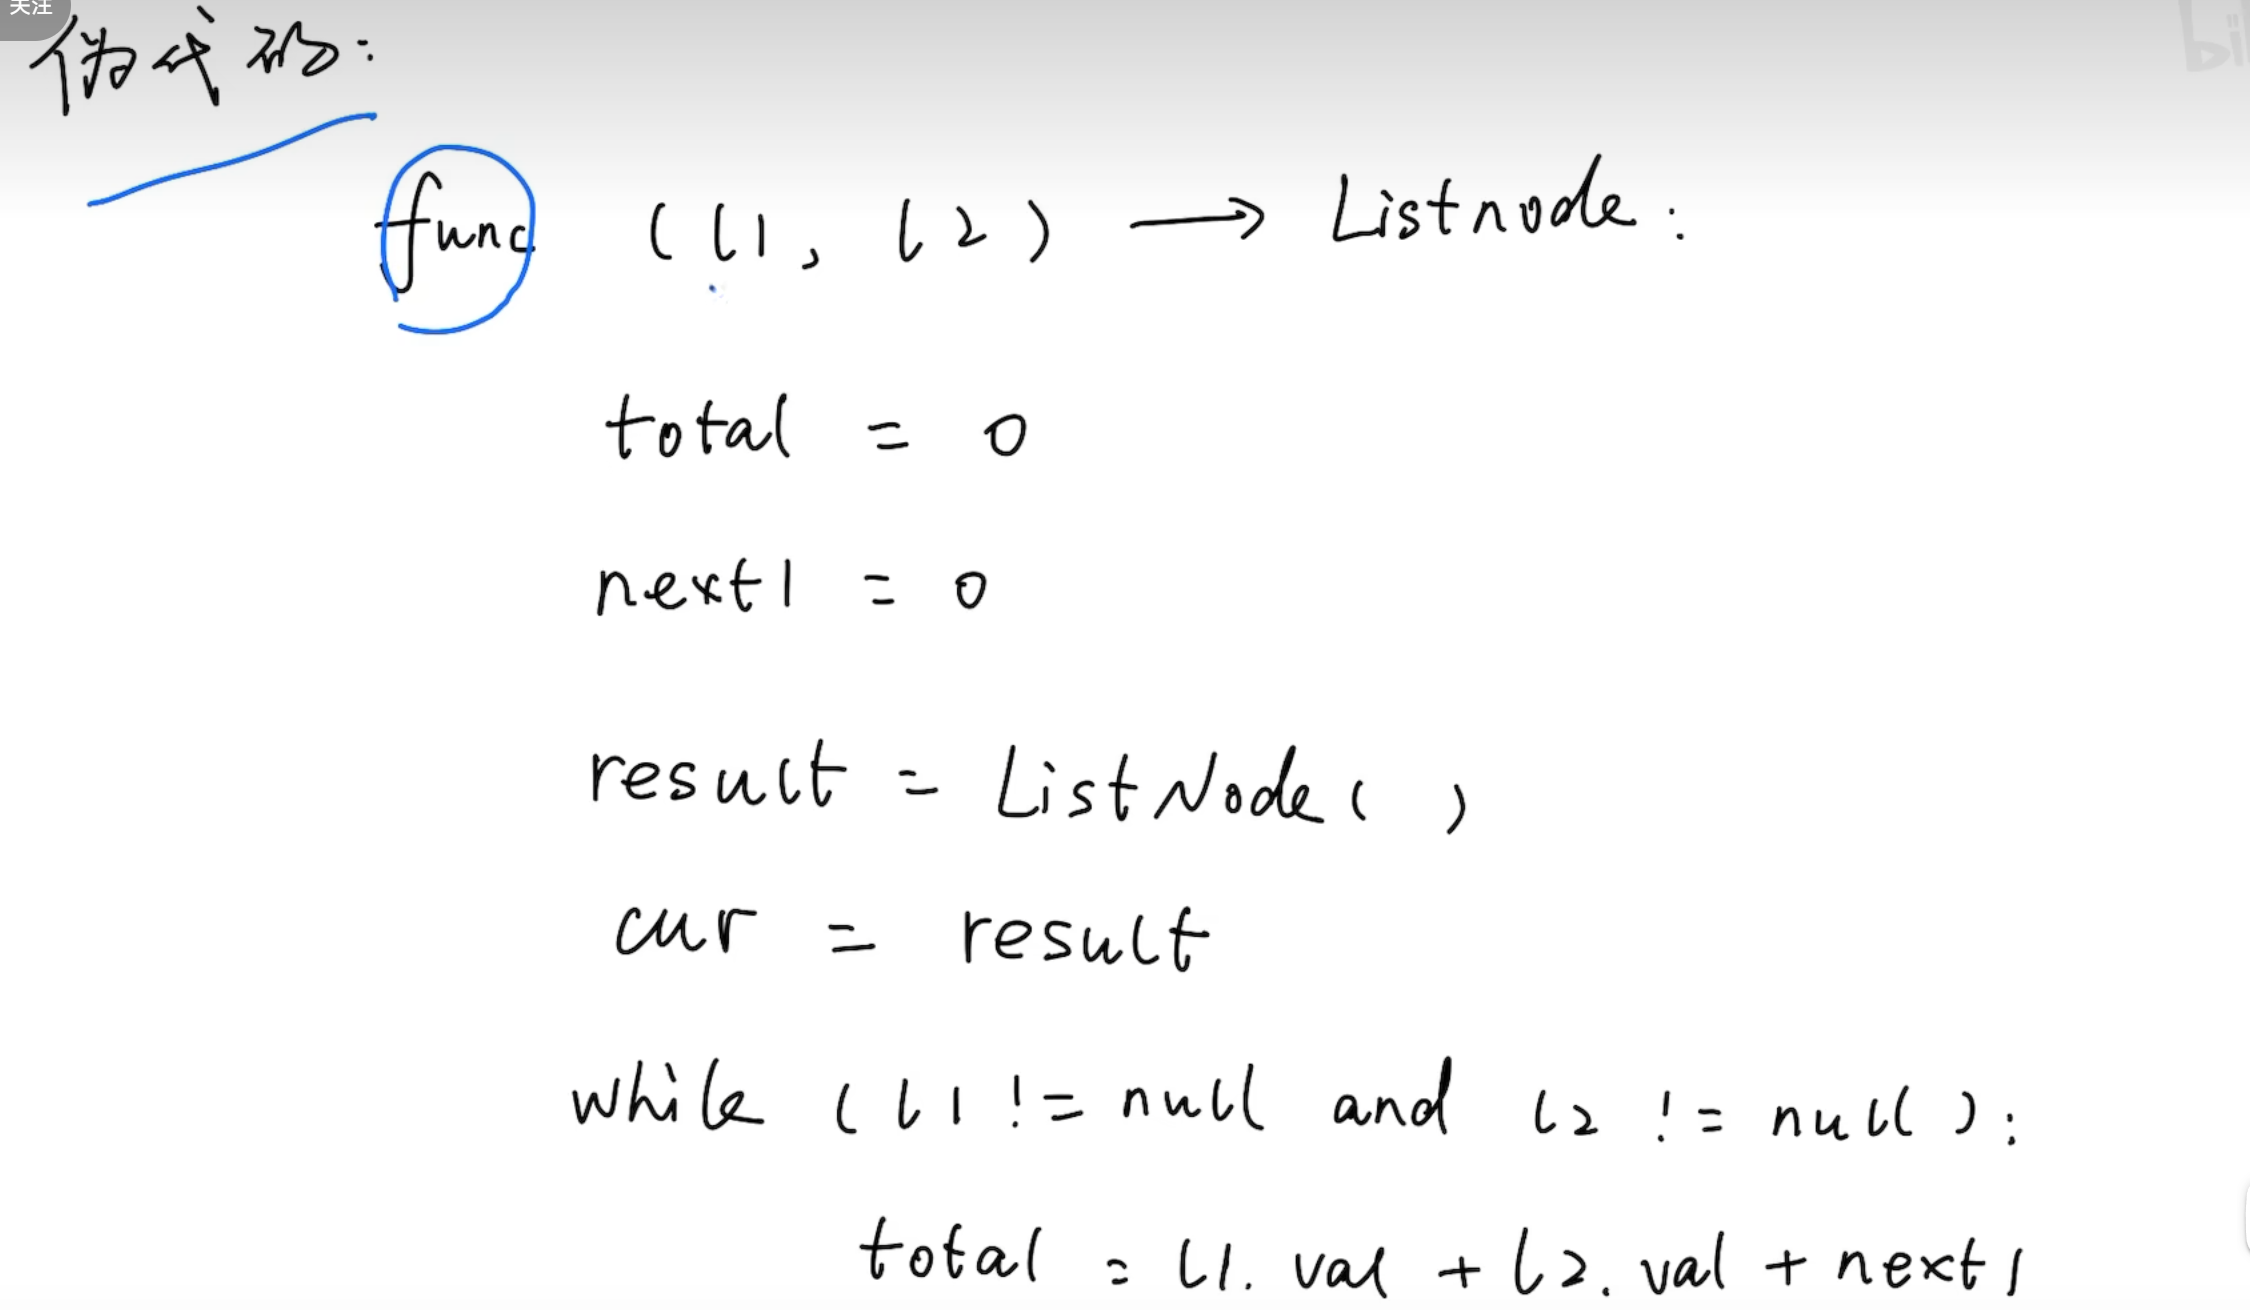 关注
伪代码:
bil
func (l1, l2) → Listnode:
total = 0
next1 = 0
result = ListNode( )
cur = result
while (l1 != null and l2 != null):
total = l1.val + l2.val + next1